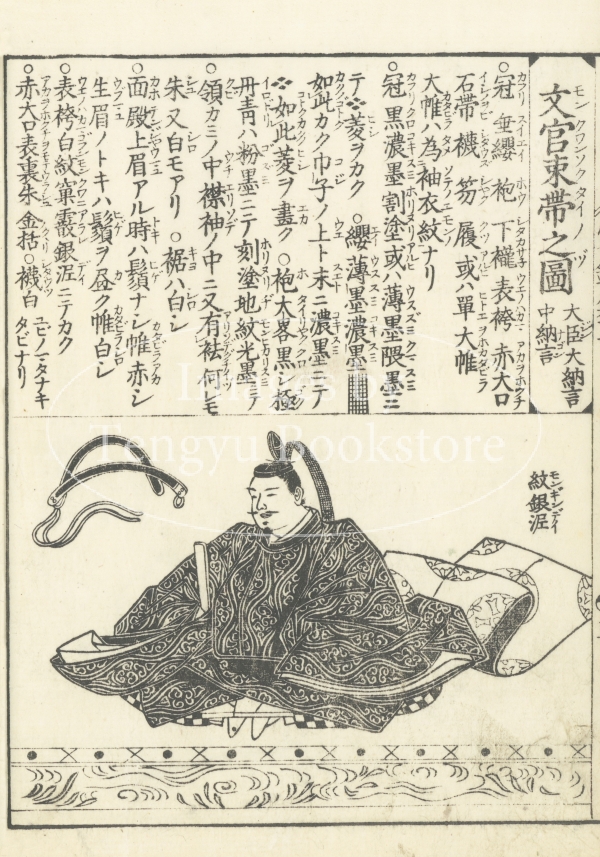 文官束帯之圖
モンクワンソクタイノヅ
大臣大納言
中納言
冠 垂纓 袍 下襲 表袴 赤大口
石帯 襪 笏 履 或ハ單 大帷
大帷ハ為袖衣紋ナリ
○冠 黒濃墨割塗或ハ薄墨隈墨ニ
テ菱ヲカク ○纓薄墨濃墨
如此カク巾子ノ上ト末ニ濃墨ニテ
如此菱ヲ畫ク ○袍大畧黒シ極
丹青ハ粉墨ニテ刻塗地紋光墨ニテ
○領カミノ中襟袖ノ中ニ又有袪何レモ
朱 又白モアリ ○裾ハ白シ
○面 殿上眉アル時ハ鬚ナシ帷赤シ
生眉ノトキハ鬚ヲ畫ク帷白シ
○表袴白紋窠霰銀泥ニテカク
○赤大口表裏朱 金括 ○襪白 ユビノマタナキ
タビナリ
紋銀泥
モンギンデイ
Images of
Tengyu Bookstore